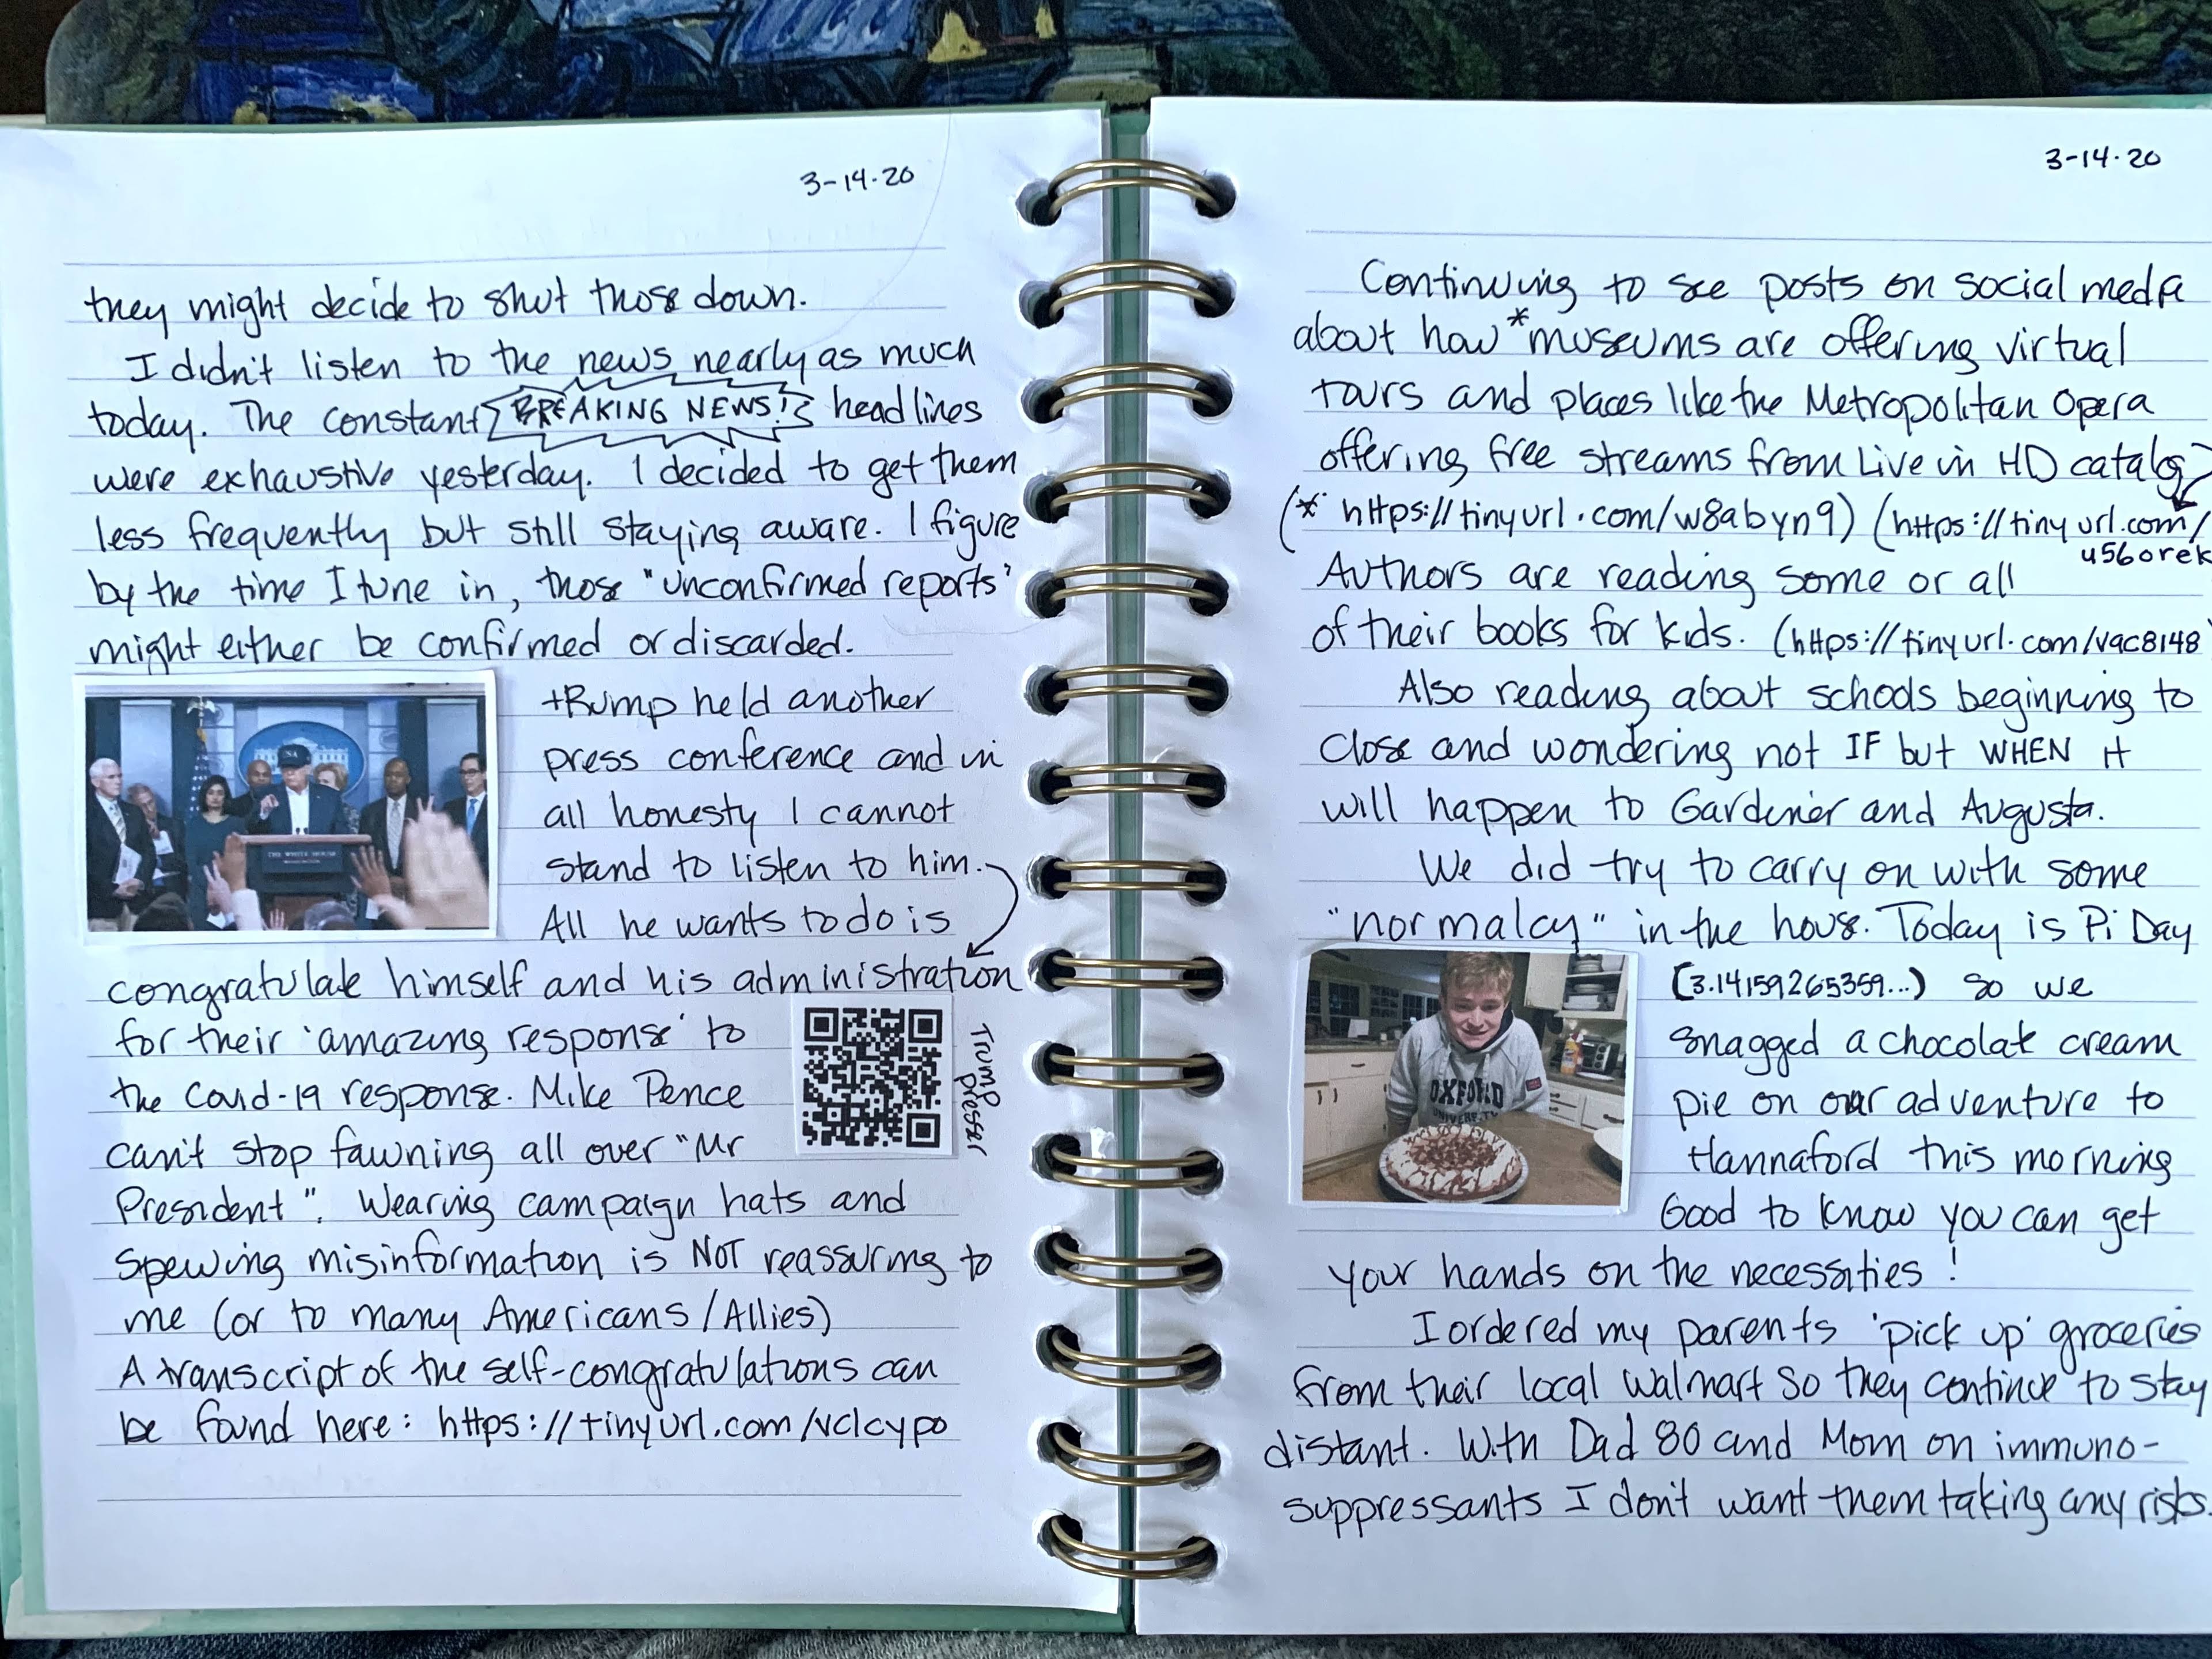 3-14-20
they might decide to shut those down.
I didn't listen to the news nearly as much
today. The constant BREAKING NEWS! headlines
were exhaustive yesterday. I decided to get them
less frequently but still staying aware. I figure
by the time I tune in, those "unconfirmed reports"
might either be confirmed or discarded.
tRump held another
press conference and in
all honesty I cannot
stand to listen to him.
All he wants to do is
congratulate himself and his administration
for their 'amazing response' to
the Covid-19 response. Mike Pence
can't stop fawning all over "Mr
President". Wearing campaign hats and
spewing misinformation is NOT reassuring to
me (or to many Americans/Allies)
A transcript of the self-congratulations can
be found here: https://tinyurl.com/vclcypo
Trump
presser
THE WHITE HOUSE
3-14-20
Continuing to see posts on social media
about how *museums are offering virtual
tours and places like the Metropolitan Opera
offering free streams from Live in HD catalog
(* https://tinyurl.com/w8abyn9) (https://tinyurl.com/
u56orek
Authors are reading some or all
of their books for kids. (https://tinyurl.com/vqc8148)
Also reading about schools beginning to
close and wondering not IF but WHEN it
will happen to Gardiner and Augusta.
We did try to carry on with some
"normalcy" in the house. Today is Pi Day
(3.14159265359...) so we
snagged a chocolate cream
pie on our adventure to
Hannaford this morning
Good to know you can get
your hands on the necessities!
I ordered my parents 'pick up' groceries
from their local Walmart so they continue to stay
distant. With Dad 80 and Mom on immuno-
suppressants I don't want them taking any risks.
OXFORD
UNIVERSITY